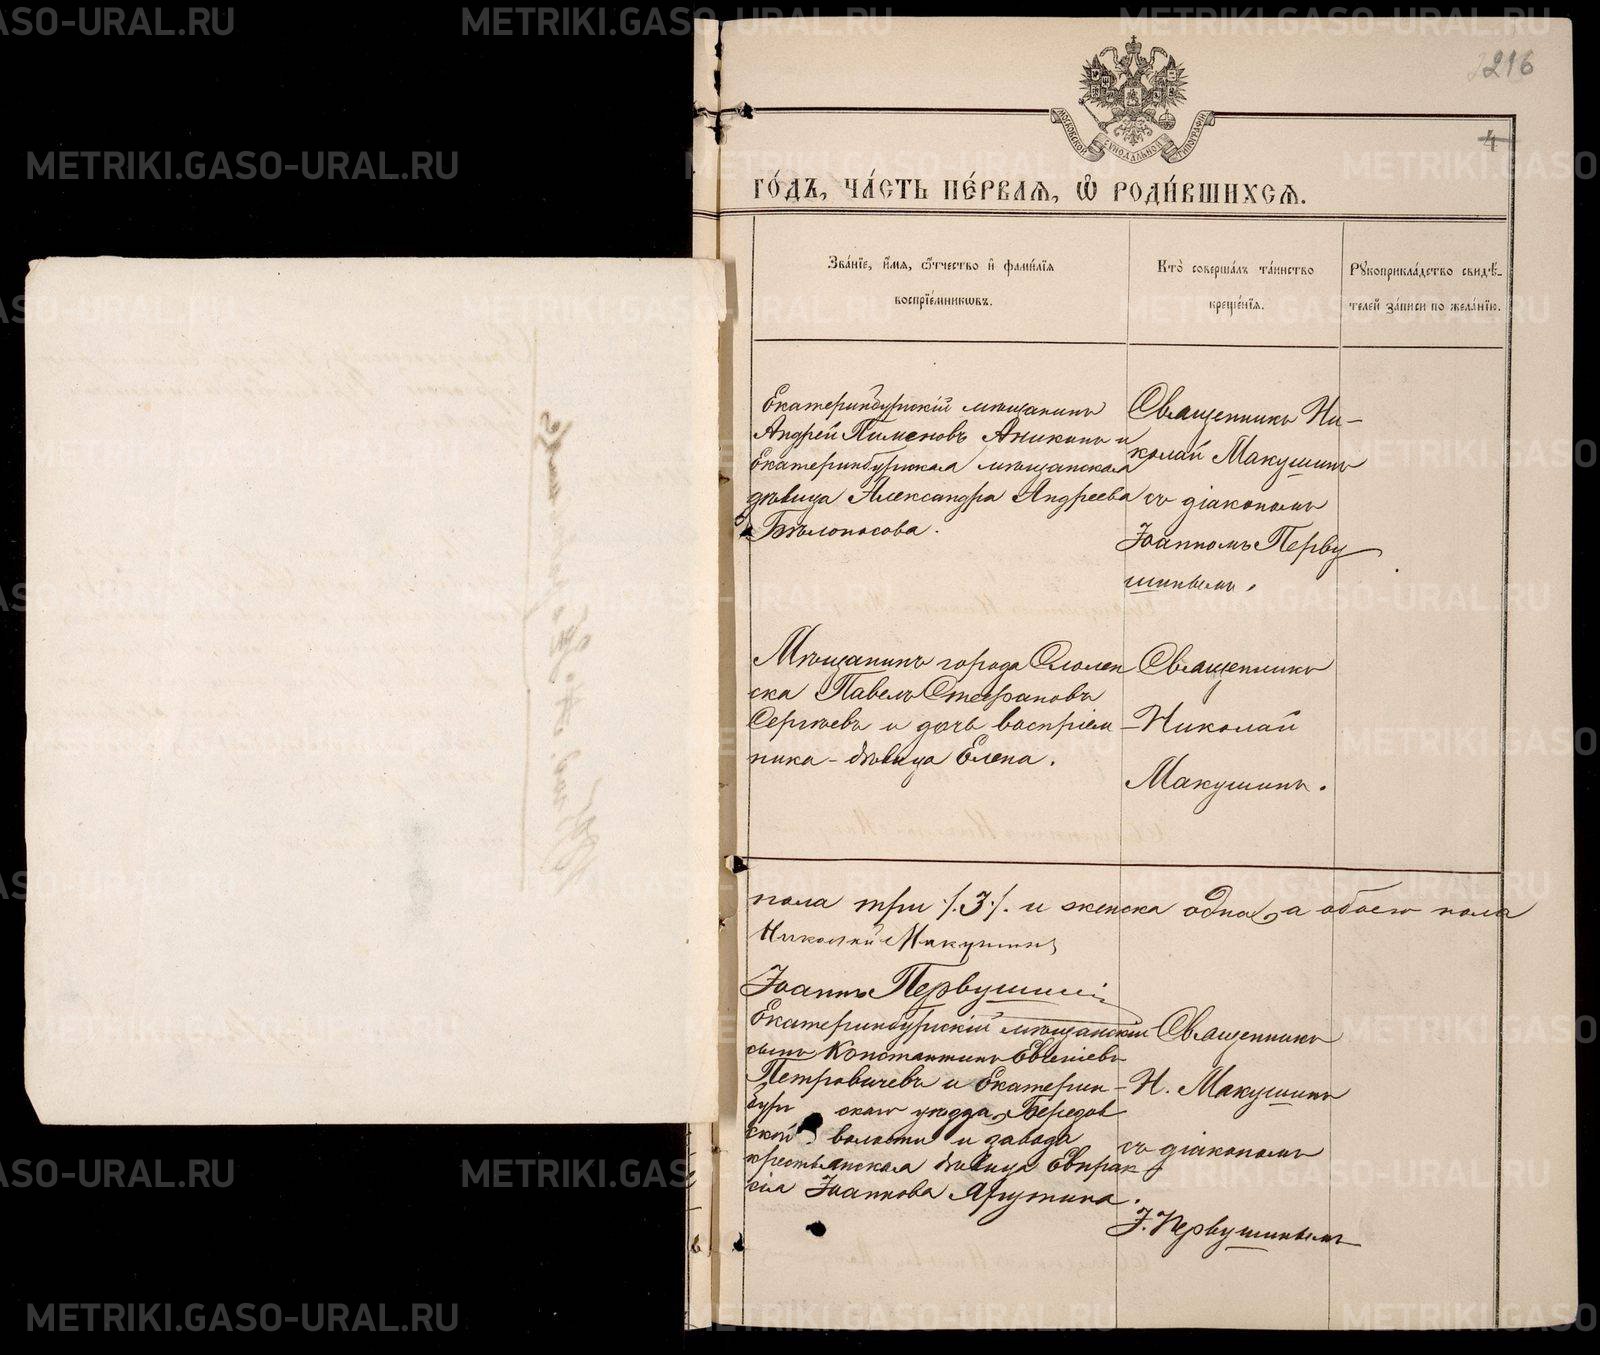 216
4
МОСКОВСКОЙ СѴНОДАЛЬНОЙ ТИПОГРАФІИ
ГО́ДЪ, ЧА́СТЬ ПЕ́РВАЯ, Ѽ РОДИ́ВШИХСЯ.
Зва́нїе, и҆́мя, ѻ҆́тчество и҆ фами́лїя
воспрїе́мникѡвъ.
Кто̀ соверша́лъ та́инство
креще́нїя.
Рꙋкоприкла́дство свидѣ́-
телей за́писи по жела́нїю.
Екатеринбургскій мѣщанинъ
Андрей Пименовъ Аникинъ и
Екатеринбургская мѣщанская
дѣвица Александра Андреева
Бѣлоносова.
Священникъ Ни-
колай Макушинъ
съ діакономъ
Іоанномъ Перву
шинымъ.
Мѣщанинъ города Смолен
ска Павелъ Стефановъ
Сергѣевъ и дочь воспріем
ника - дѣвица Елена.
Священникъ
Николай
Макушинъ.
пола три /.3./. и женска одна, а обоего пола
Николай Макушинъ
Іоаннъ Первушинъ
Екатеринбургскій мѣщанскій
сынъ Константинъ Евгеніевъ
Петровичевъ и Екатерин-
бург скаго уѣзда, Березов
ской волости и завода
крестьянская дѣвица Евпрак
сія Іоаннова Ярутина.
Священникъ
Н. Макушинъ
съ діакономъ
І. Первушинымъ
METRIKI.GASO-URAL.RU